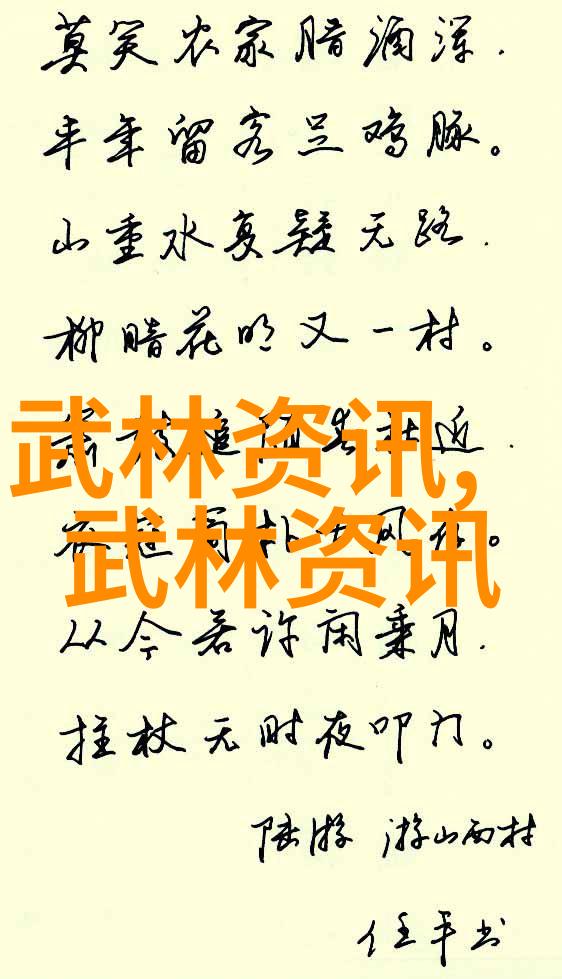 莫笑农家腊酒浑.
丰年留客足鸡豚。
山重水复疑无路.
柳暗花明又一村。
追 近.
武林资讯,
武林资讯
从今若许闲乘月.
拄杖无时夜叩门。
陆游 游山西村
任平书